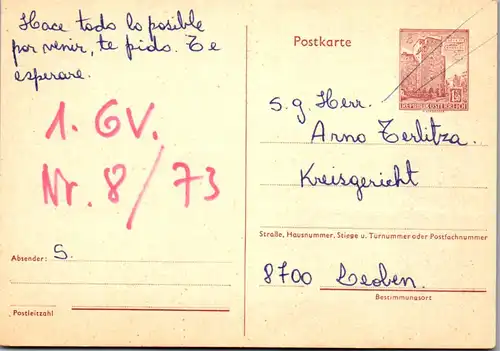 Hace todo lo posible
por venir, te pido. Te
esperare.
1. GV.
Nr. 8/73
Absender: S.
Postleitzahl
Postkarte
REPUBLIK ÖSTERREICH
S. g. Herr.
Arno Terlitza.
Kreisgericht
Straße, Hausnummer, Stiege u. Türnummer oder Postfachnummer
8700 Leoben.
Bestimmungsort